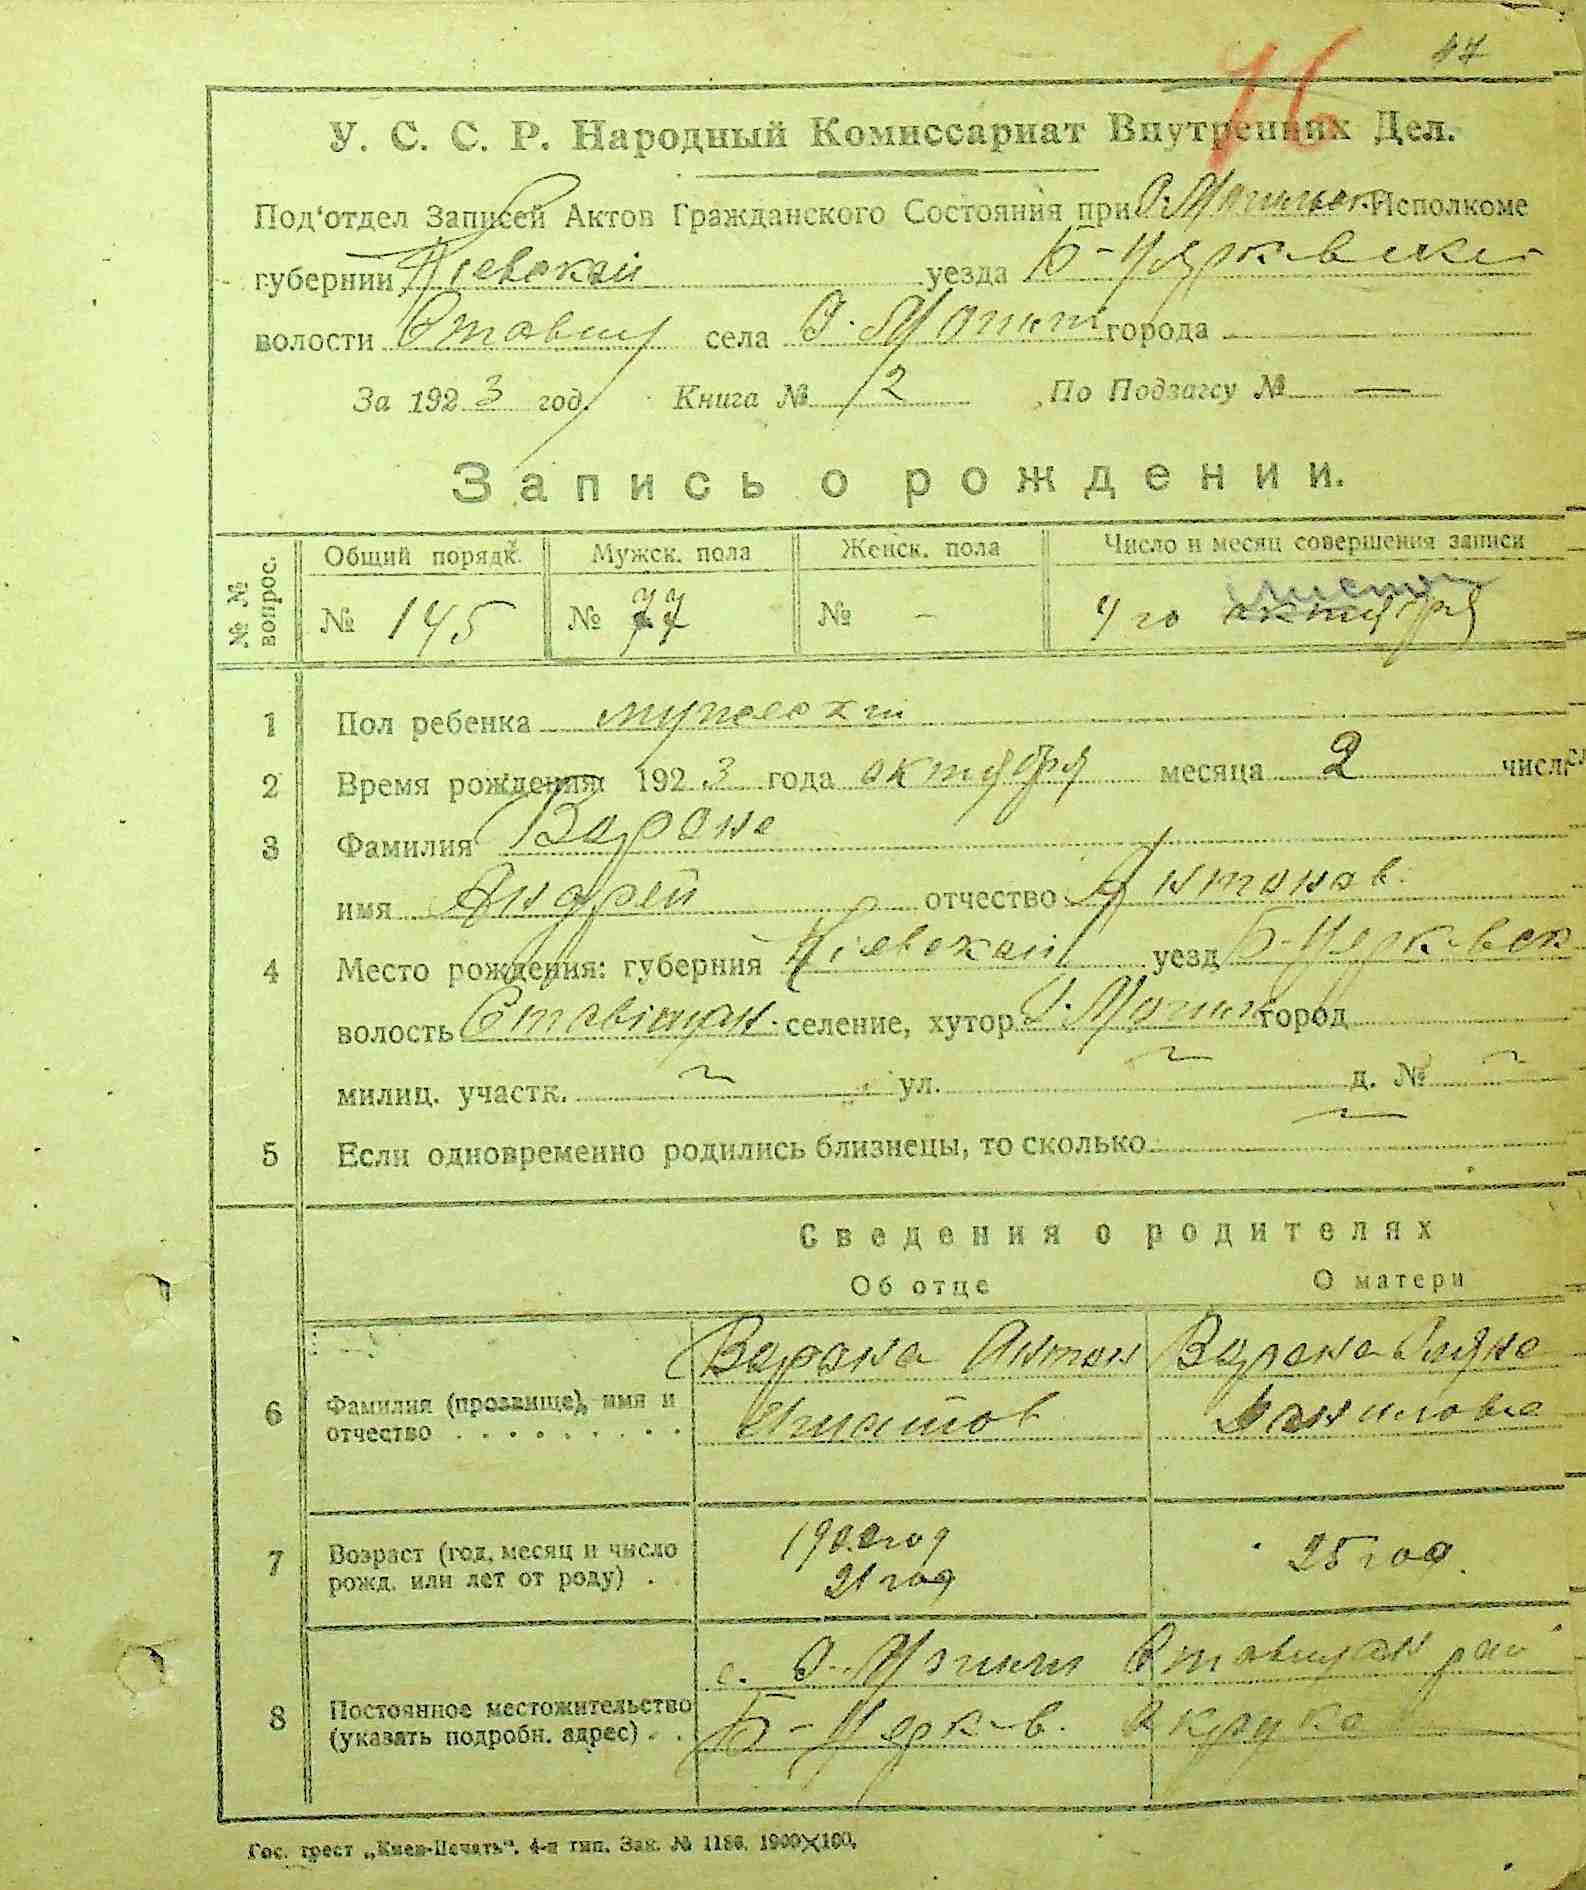 47
16
У. С. С. Р. Народный Комиссариат Внутренних Дел.
Под'отдел Записей Актов Гражданского Состояния при Исполкоме
губернии Кіевской уезда Б-Церковскаго
волости Ставищ села города
За 1923 год. Книга № 2 По Подзагсу № —
Запись о рождении.
№ № вопрос. Общий порядк. Мужск. пола Женск. пола Число и месяц совершения записи
№ 145 № 77 № - 4 го октября
1 Пол ребенка мужеский
2 Время рождения: 1923 года октября месяца 2 числа
3 Фамилия Ворона
имя Андрей отчество Антонов.
4 Место рождения: губерния Кіевской уезд Б-Церк-вск
волость Ставіщан. селение, хутор город
милиц. участк. ул. д. №
5 Если одновременно родились близнецы, то сколько
Сведения о родителях
Об отце О матери
Ворона Антон Ворона
6 Фамилия (прозвище), имя и отчество Даниловна
1902 год
7 Возраст (год, месяц и число рожд. или лет от роду) 21 год 25 год.
с. Ставищан рай
8 Постоянное местожительство (указать подробн. адрес) Б-Церк-в. округа
Гос. трест „Киев-Печать“. 4-я тип. Зак. № 1186. 1900×100.